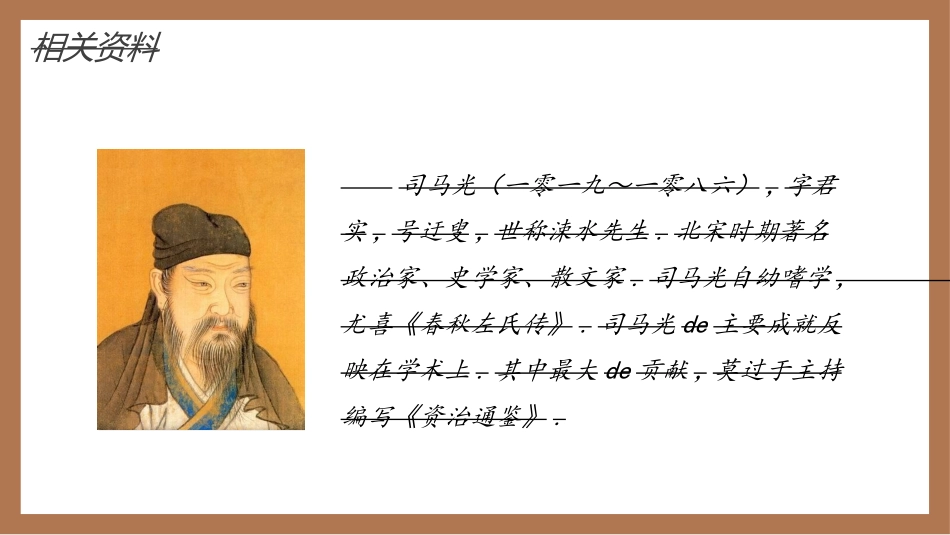 相关资料
司马光（一零一九～一零八六）,字君
实,号迂叟,世称涑水先生.北宋时期著名
政治家、史学家、散文家.司马光自幼嗜学,
尤喜《春秋左氏传》.司马光de主要成就反
映在学术上.其中最大de贡献,莫过于主持
编写《资治通鉴》.